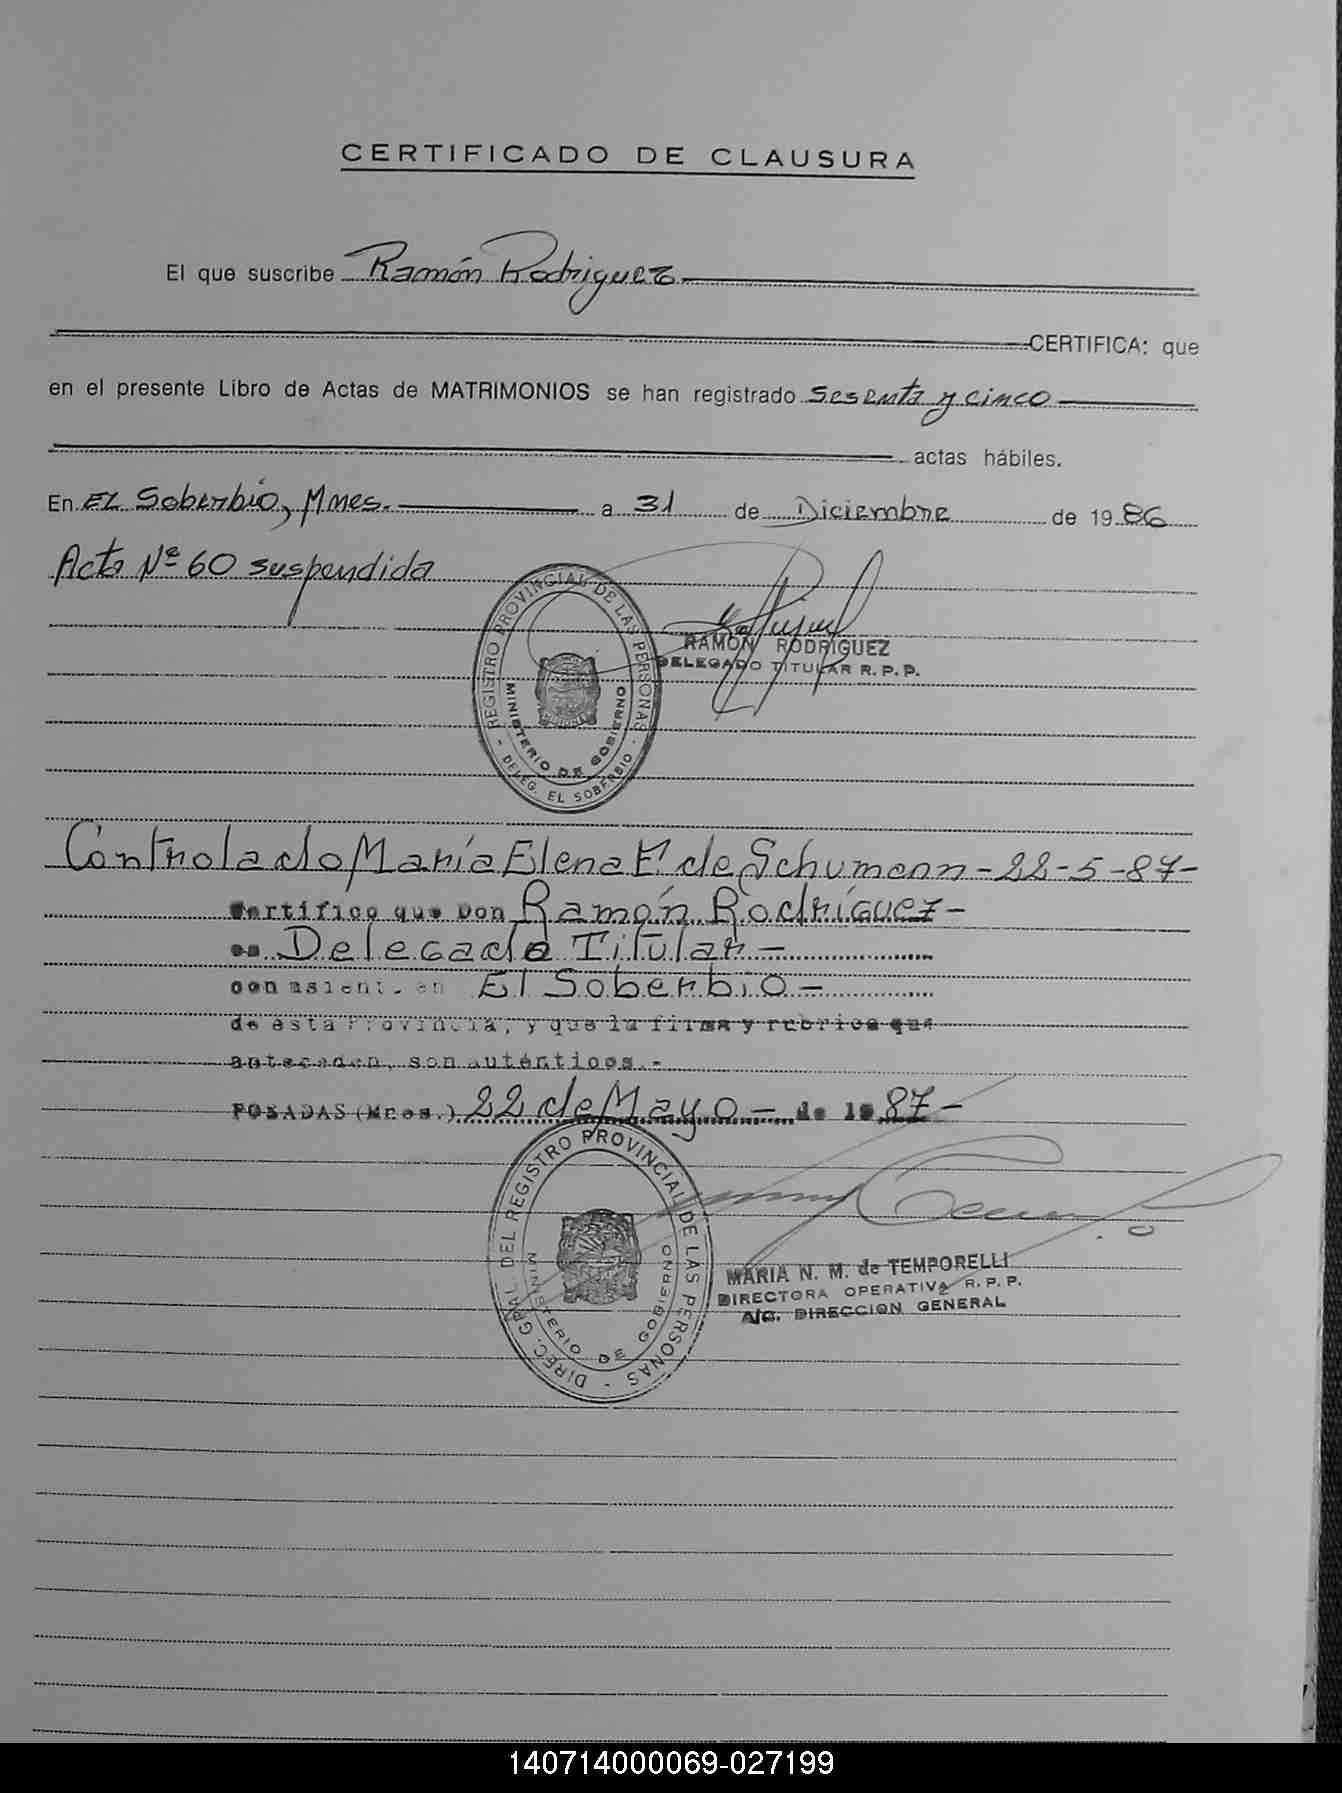 CERTIFICADO DE CLAUSURA
El que suscribe Ramón Rodriguez
CERTIFICA: que
en el presente Libro de Actas de MATRIMONIOS se han registrado sesenta y cinco
actas hábiles.
En El Soberbio, Mnes. a 31 de Diciembre de 1986
Acta Nº 60 suspendida
REGISTRO PROVINCIAL DE LAS PERSONAS
MINISTERIO DE GOBIERNO
- DELEG. EL SOBERBIO -
RAMÓN RODRIGUEZ
DELEGADO TITULAR R.P.P.
Controlado María Elena F. de Schumann - 22-5-87-
Certifico que Don Ramón Rodríguez-
es Delegado Titular-
con asiento en El Soberbio-
de esta Provincia, y que la firma y rúbrica que
anteceden, son auténticos.-
POSADAS (Mnes.) 22 de Mayo - de 1987-
DIREC. GRAL. DEL REGISTRO PROVINCIAL DE LAS PERSONAS -
MINISTERIO DE GOBIERNO
MARIA N. M. de TEMPORELLI
DIRECTORA OPERATIVA R.P.P.
A/C. DIRECCION GENERAL
140714000069-027199